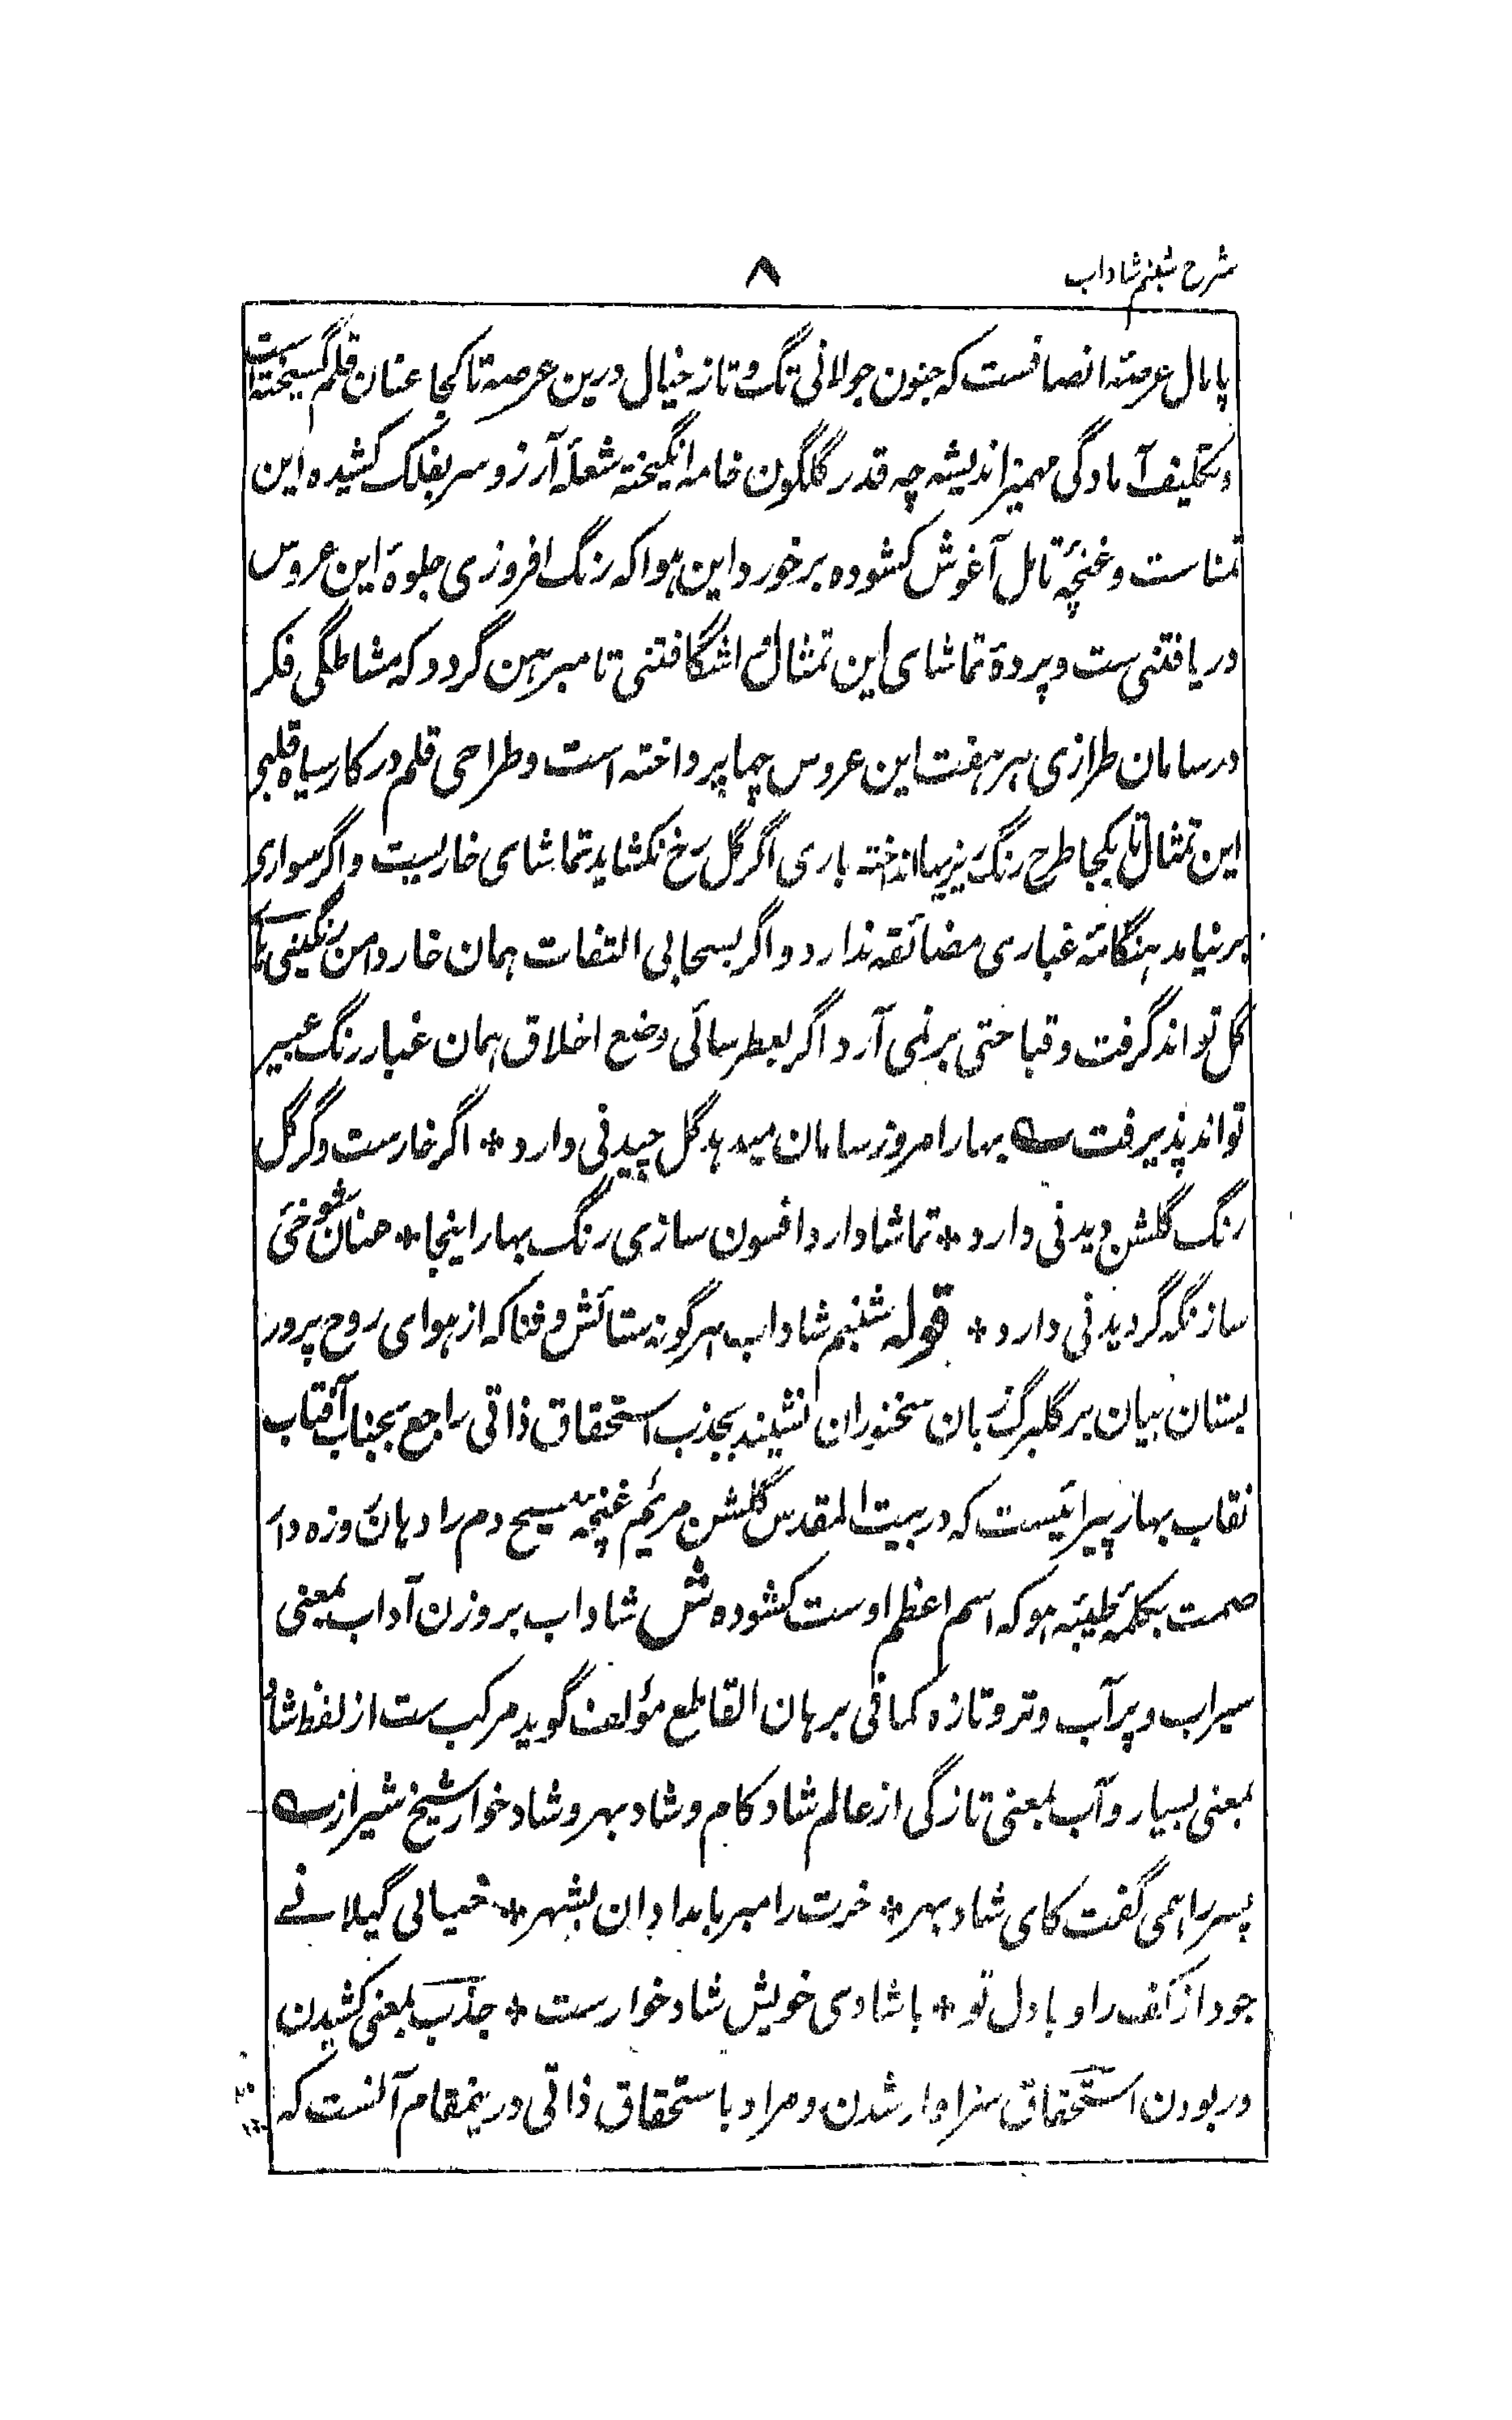 شرح شبنم شاداب
۸
پامال عرصۂ انصافست که جنون جولانی تگ و تاز خیال درین عرصه تا کجا عنان قلم گسیخته است
و تکلیف آمادگی مهمیز اندیشه چه قدر گلگون خامه انگیخته شعلۂ آرزو سر بفلک کشیده این
تمناست و غنچۂ تامل آغوش کشوده برخورد این هوا که رنگ افروزی جلوۂ این عروس
دریافتنی ست و پردۂ تماشای این تمثال اشگافتنی تا مبرهن گردد که مشاطگی فکر
در سامان طرازی هر هفت این عروس چها پرداخته است و طراحی قلم در کار سیاه قلمی
این تمثال تا بکجا طرح رنگ ریزیها انداخته باری اگر گل رخ نکشاید تماشای خاریست و اگر سواری
بر نیاید هنگامۂ غباری مضائقه ندارد و اگر بسحابی التفات همان خار دامن رنگینی
گل تواند گرفت و قباحتی بر نمی آرد اگر بعطر سائی وضع اخلاق همان غبار رنگ عبیر
تواند پذیرفت ؎ بهار امروز سامان میدهد گل چیدنی دارد * اگر خارست وگر گل
رنگ گلشن دیدنی دارد * تماشا دارد افسون سازی رنگ بهار اینجا * عنان شوخئ
ساز نگه گردیدنی دارد * قوله شبنم شاداب هر گونه ستائش و ثنا که از هوای روح پرور
بستان بیان بر گلبرگ زبان سخنوران نشیند بجذب استحقاق ذاتی راجع بجناب آفتاب
نقاب بهار پیرائیست که در بیت المقدس گلشن مریم غنچۂ مسیح دم را دهان روزه دار
صمت بکلمۂ طیبۂ هو که اسم اعظم اوست کشوده ش شاداب بر وزن آداب بمعنی
سیراب و پر آب و تر و تازه کما فی برهان القاطع مؤلف گوید مرکب ست از لفظ شاد
بمعنی بسیار و آب بمعنی تازگی از عالم شاد کام و شاد بهر و شاد خوار شیخ شیراز ؎
پسر را همی گفت کای شاد بهر * خرت را مبر بامدادان بشهر * خیالی گیلانے
جود از کف راد با دل تو * با شادی خویش شاد خوارست * جذب بمعنی کشیدن
و ربودن استحقاق سزاوار شدن و مراد باستحقاق ذاتی درینمقام آنست که